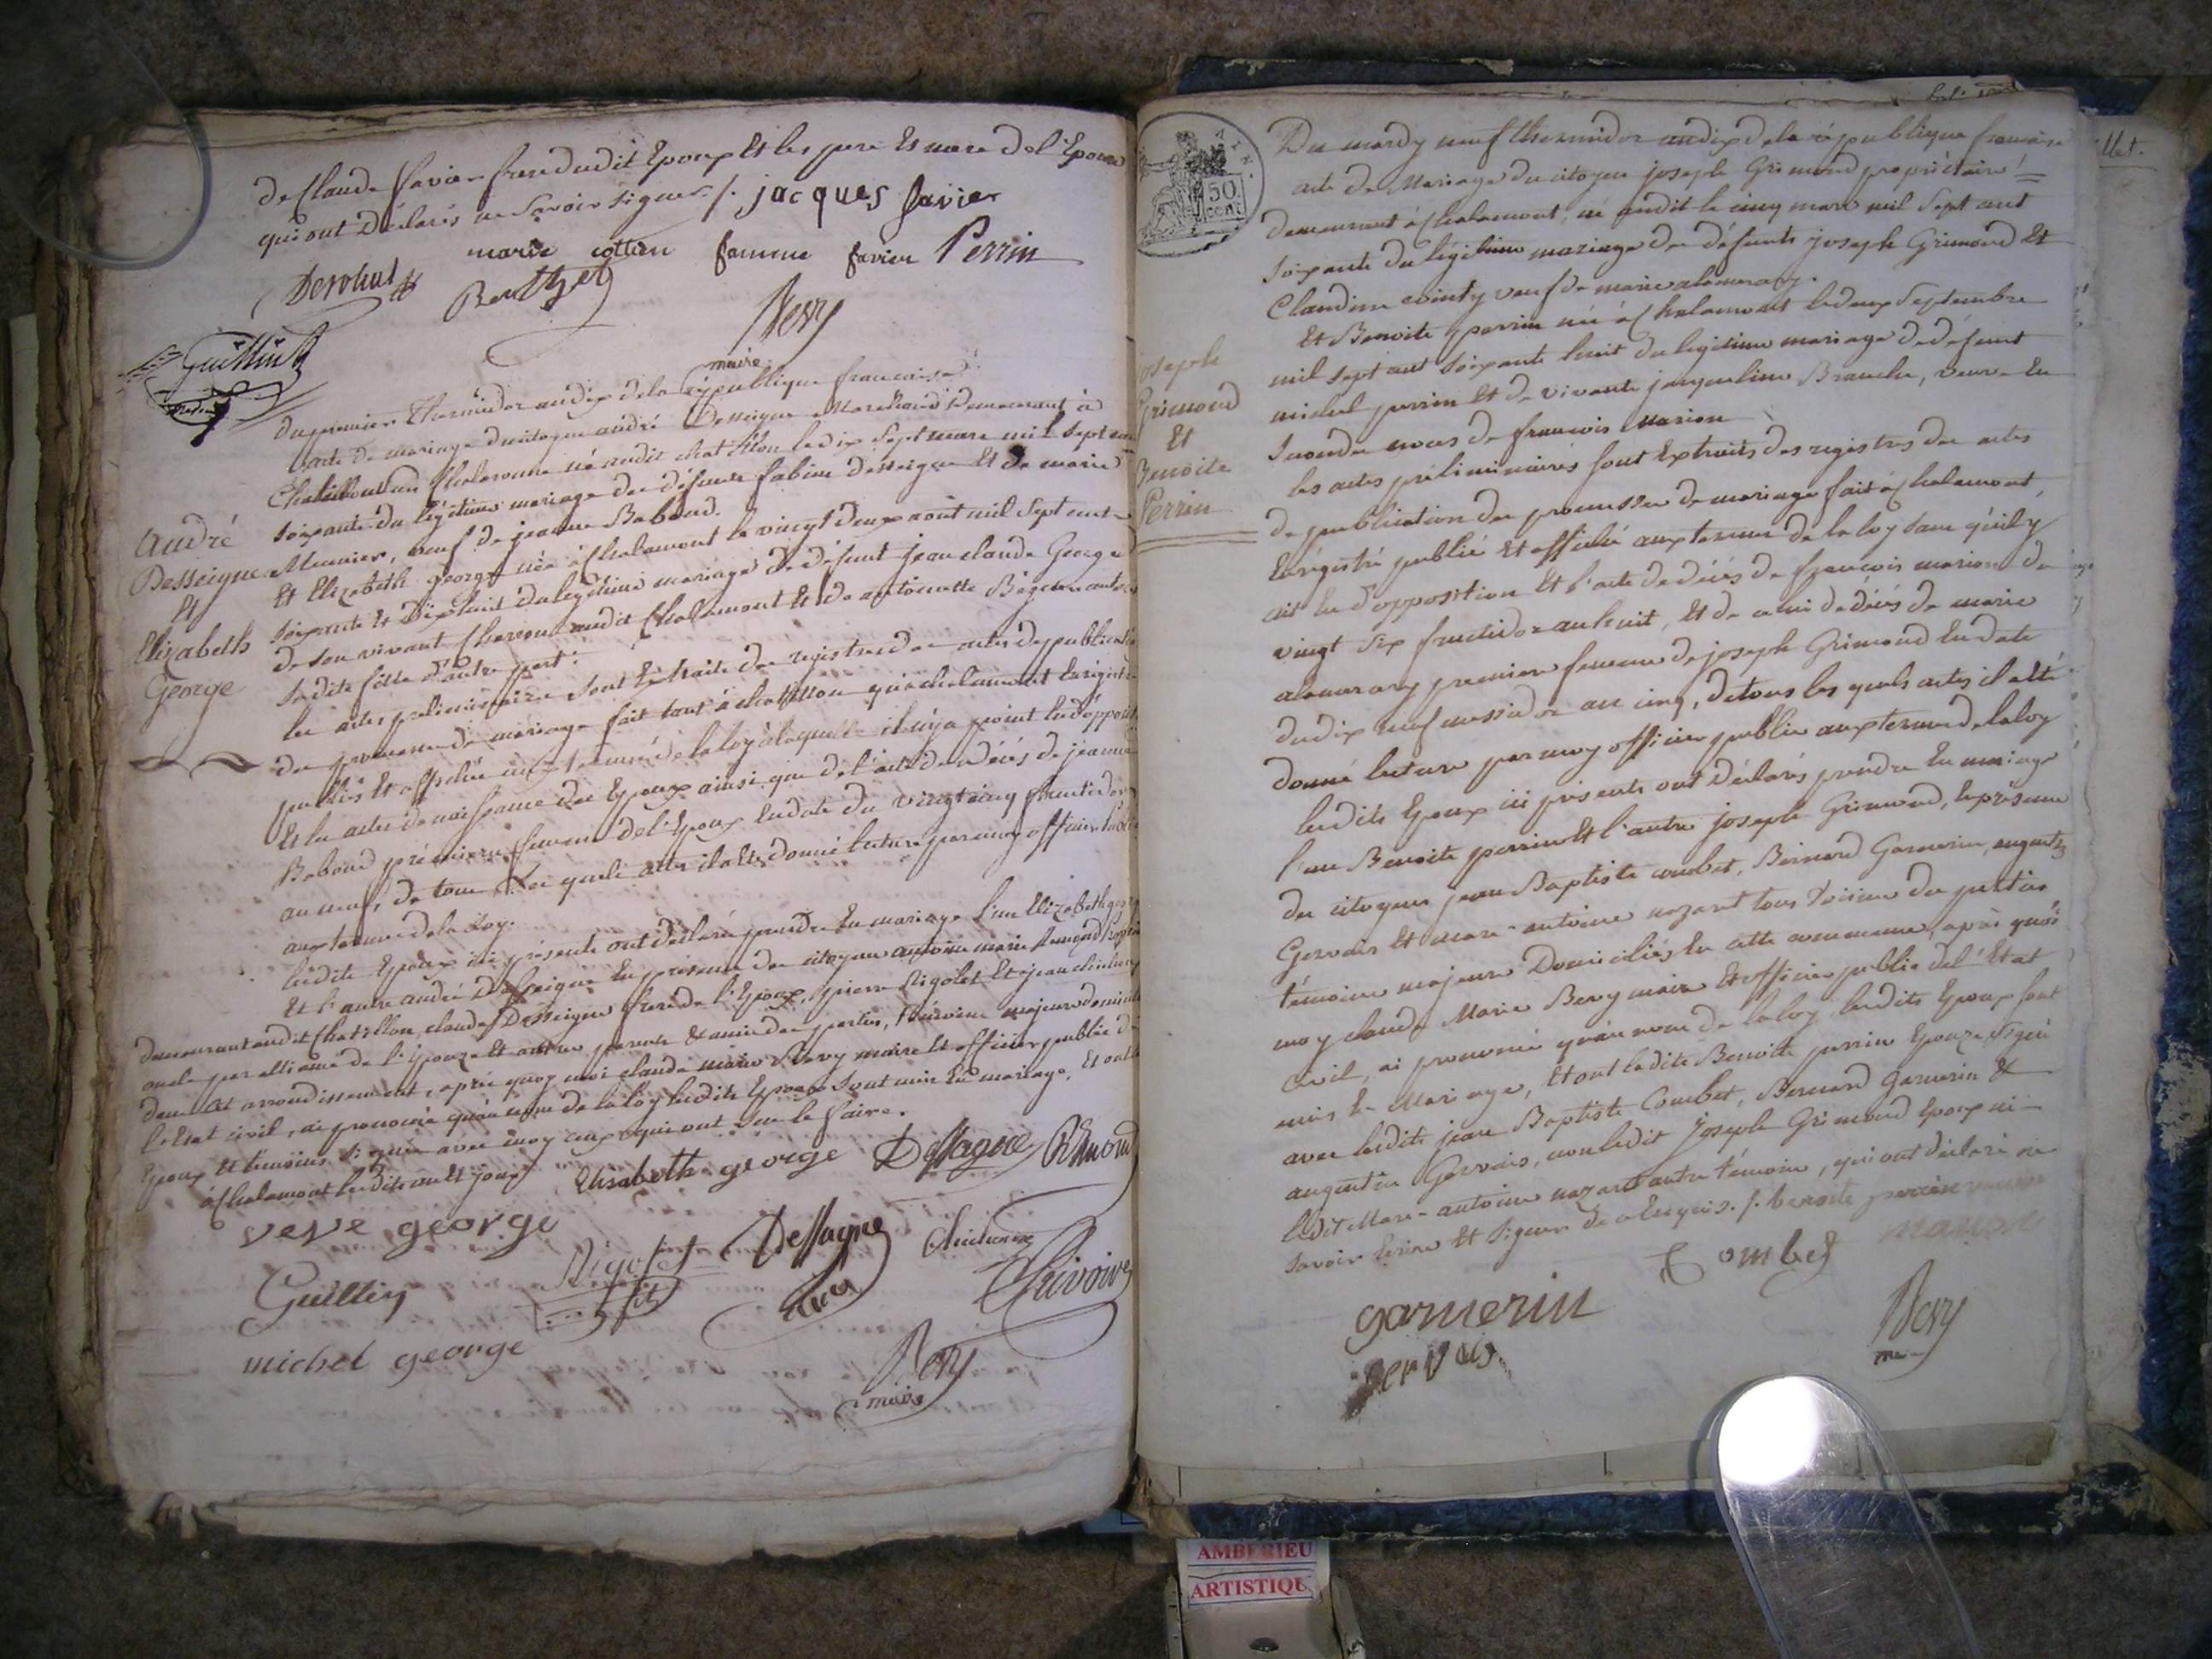 de Claude favier frere dudit Epoux Et les pere Et mere de l'Epouse
qui ont Déclarés ne Savoir signer ./. jacques favier
marie cottien femme favier Perrin
Berthet
Bevy
maire
Guillin
du premier Thermidor an dix de la république francaise
acte de mariage du citoyen andré Desseigne Marchand Demeurant à
Chatillon sur Chalaronne né audit chatillon le dix Sept mars mil Sept cent
soixante du légitime mariage de défunts fabien desseigne Et de marie
Meunier, veuf de jeanne Baboud.
Et Elizabeth george née à Chalamont le vingt deux aout mil Sept cent
soixante Et Dix huit du légitime mariage de défunt jean claude George
de son vivant Charron audit Chalamont Et de antoinette
Sadite fille d'autre part.
les actes preliminaires sont Extraits des registres des actes de publication
des promesses de mariage fait tant à chatillon qu'a chalamont Enrégistré
publiés Et affichés aux termes de la loy à laquelle il n'y a point Eu d'opposition
Et les actes de naissance des Epoux ainsi que de l'acte de décés de jeanne
Baboud premiere femme de l'Epoux En date du vingt cinq fructidor
an neuf, de tous Les quels actes il a Eté donné lecture par moy officier public
aux termes de la loy.
lesdits Epoux ici présents ont déclaré prendre En mariage l'un Elizabeth george
Et l'autre andré Desseigne En présence des citoyens antoine marie
demeurant audit Chatillon, claude Desseigne frere de l'Epoux, pierre Rigolet Et jean
oncle par alliance de l'Epouze Et autres parents & amis des parties, témoins majeurs domiciliés
dans cet arrondissement, aprés quoy moi claude marie Bevy maire Et officier public de
l'Etat civil, ai prononcé qu'au nom de la loy lesdits Epoux sont unis En mariage, Et ont les
Epoux Et témoins Signés avec moy ceux qui ont Seu le faire.
à Chalamont lesdits an Et jour
Elisabeth george Dessagne
veve george
Rigolet Dessagne
Guillin
michel george
Bevy
maire
André
Desseigne
Et
Elizabeth
George
50
cent
Du mardy neuf thermidor an dix de la république francaise
acte de Mariage du citoyen joseph Grimond propriétaire
demeurant à Chalamont, né audit le cinq mars mil Sept cent
soixante du légitime mariage de défunts joseph Grimond Et
Claudine veuf de marie
Et Benoite perrin née à Chalamont le deux Septembre
mil sept cent soixante huit du legitime mariage de défunt
michel perrin Et de vivante jacqueline Branche, veuve En
Seconde noces de francois Marion
les actes préliminaires sont Extraits des registres des actes
de publication des promesses de mariage fait a Chalamont,
Enrégistré publié Et affiché aux termes de la loy sans qu'il y
ait Eu d'opposition Et l'acte de décés de francois marion du
vingt Six fructidor an huit, Et de celui de décés de marie
premiere femme de joseph Grimond En date
du dix neuf messidor an cinq, de tous les quels actes il a Eté
donné lecture par moy officier public aux termes de la loy
lesdits Epoux ici présents ont Déclarés prendre En mariage
l'un Benoite perrin Et l'autre joseph Grimond, En présence
des citoyens jean Baptiste combet, Bernard Garnerin, augustin
Gervais Et marc-antoine nazaret tous Voisins des parties
témoins majeurs Domiciliés En cette commune, après quoi
moy claude Marie Bevy maire Et officier public de l'Etat
civil, ai prononcé qu'au nom de la loy lesdits Epoux sont
unis En Mariage, Et ont ladite Benoite perrin Epouze, Signé
avec lesdits jean Baptiste Combet, Bernard garnerin &
augustin Gervais, non ledit joseph Grimond Epoux ni
ledit Marc-antoine nazaret autre témoin, qui ont déclaré ne
savoir Ecrire Et Signer de ce Enquis ./. benoite perrin veuve
marion
Combet
garnerin
gervais
Bevy
joseph
Grimond
Et
Benoite
Perrin
AMBERIEU
ARTISTIQU